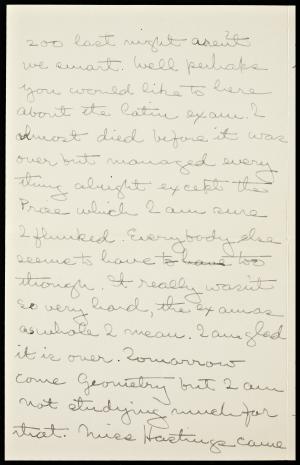 zoo last night arent
we smart. Well perhaps
you would like to here
about the latin exam. I
almost died before it was
over but managed every
thing alright except the
Prose which I am sure
I flunked. Everybody else
seems to have to have too
though. It really wasn't
so very hard, the exam as
as whole I mean. I am glad
it is over. Tomorrow
come Geometry but I am
not studying much for
that. Miss Hastings came